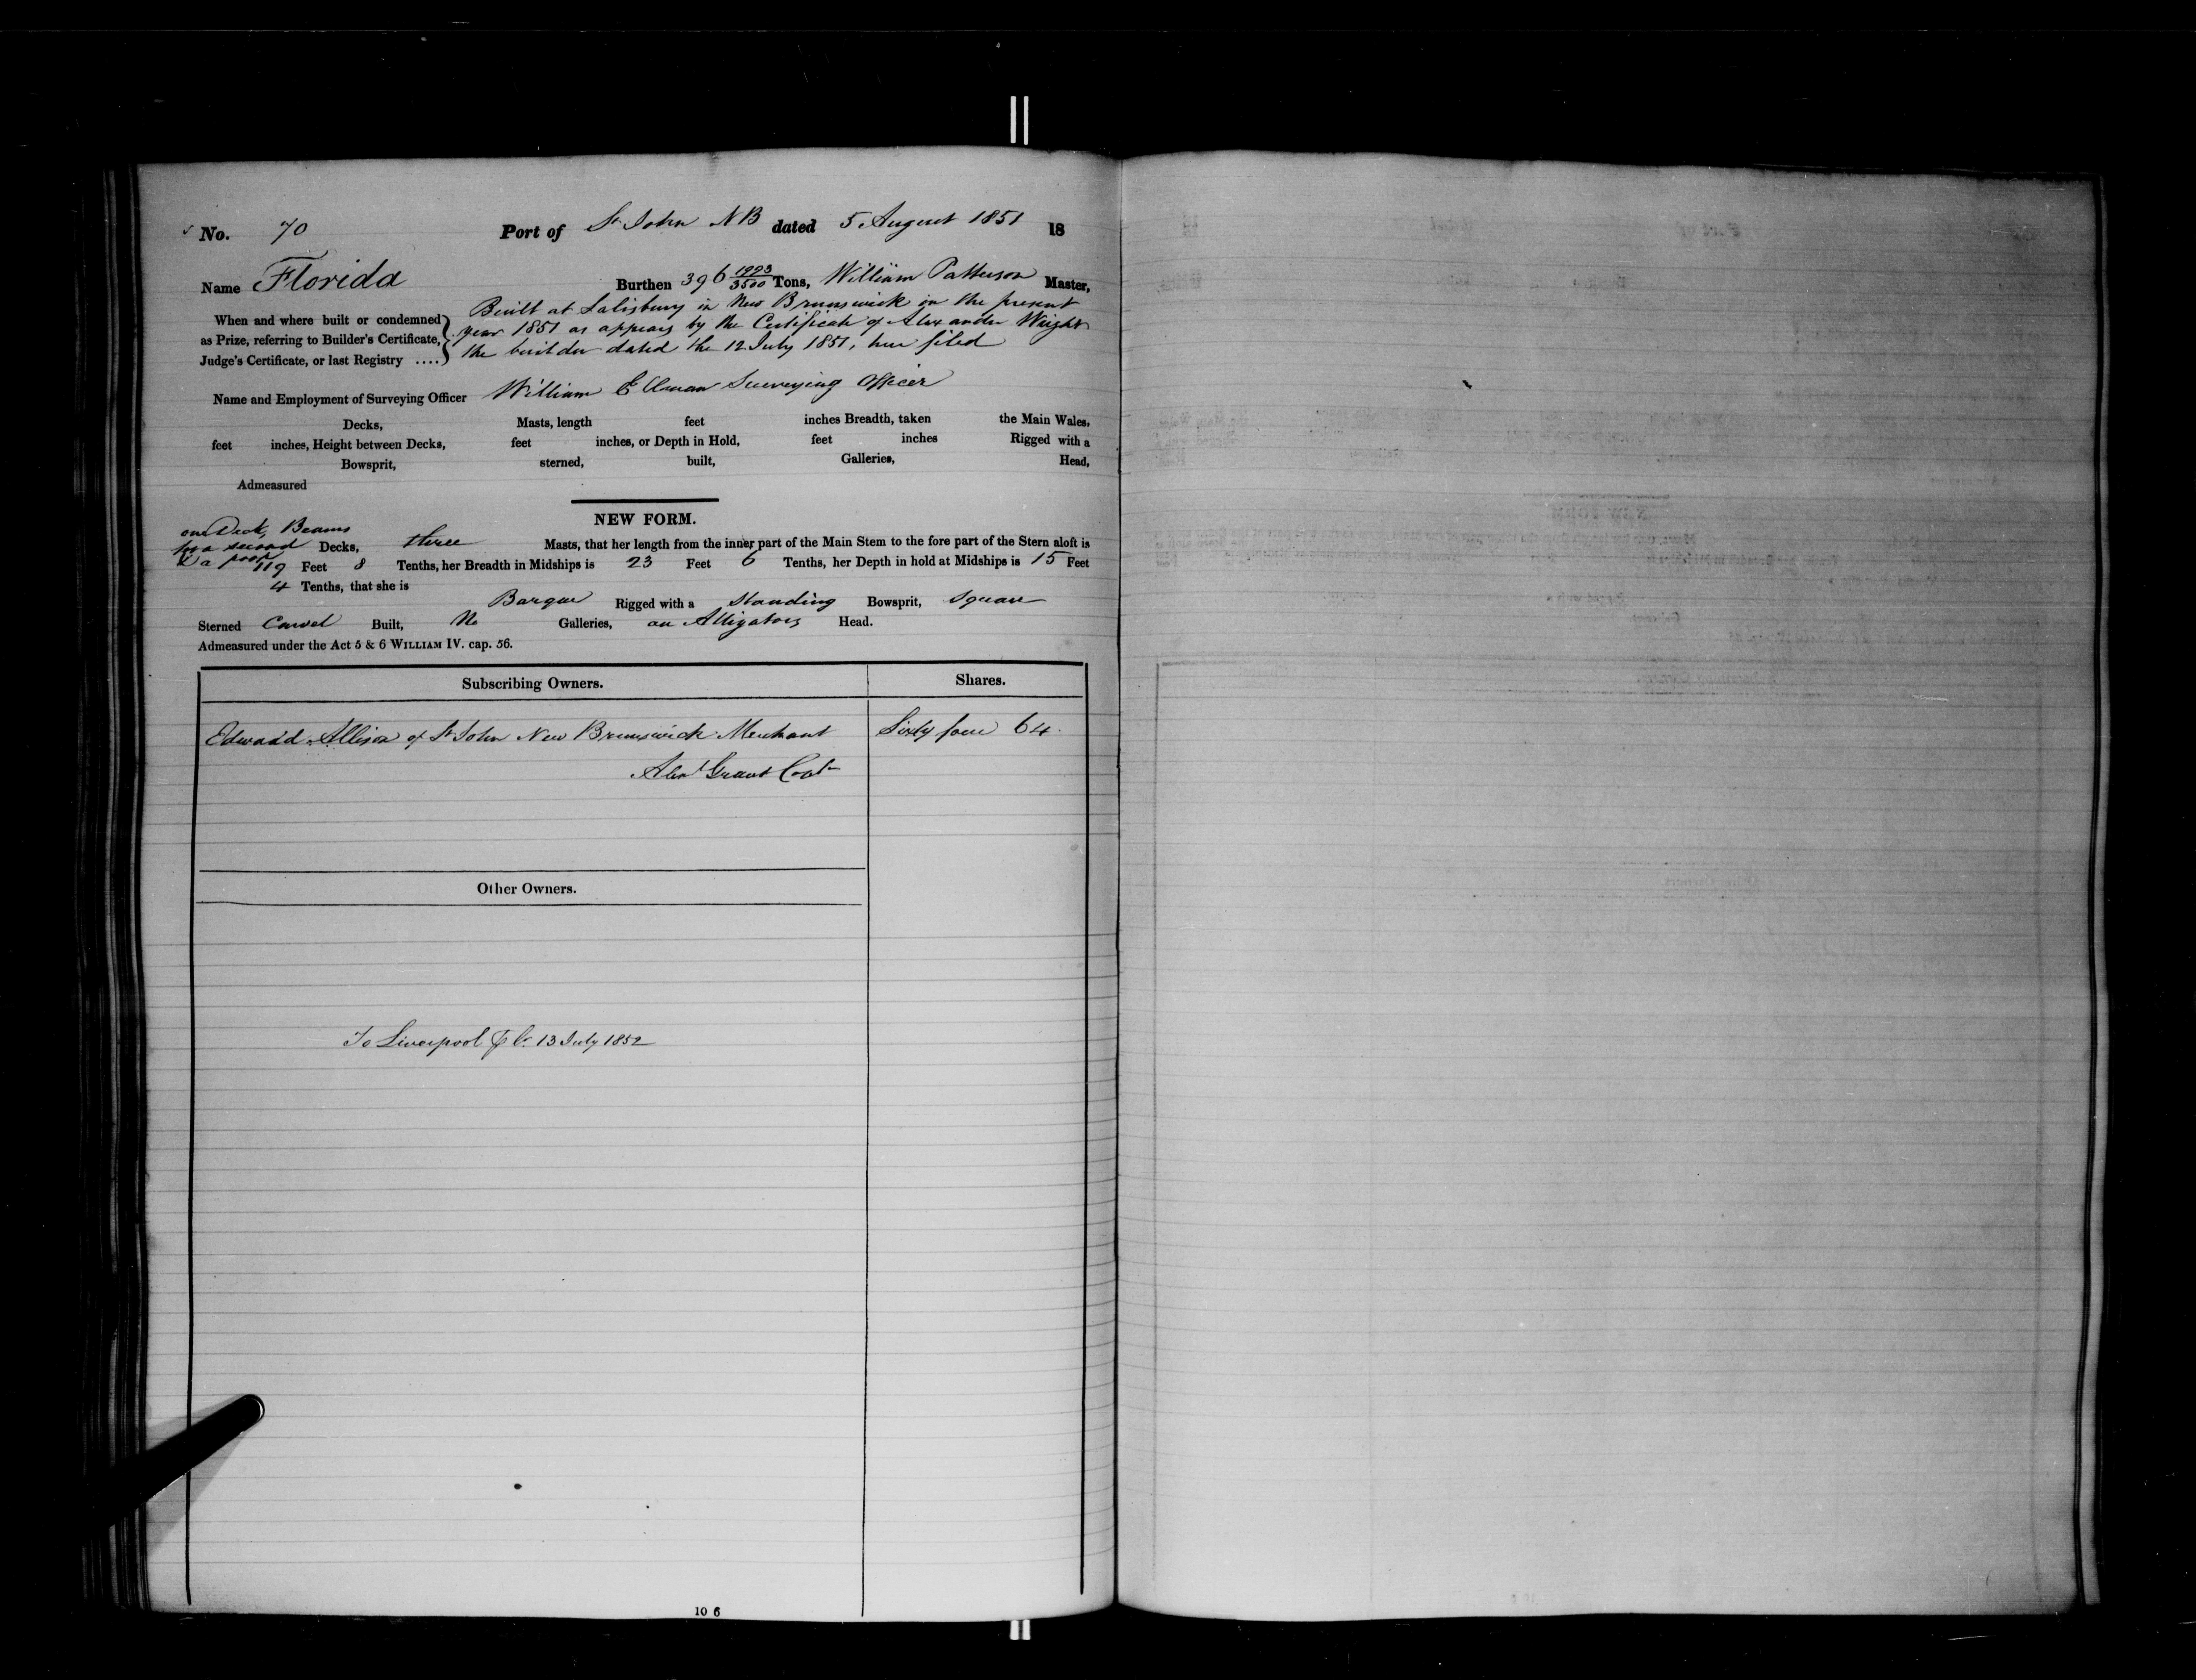 No. 70 Port of St John NB dated 5 August 1851 18
Name Florida Burthen 396 1993/3500 Tons, William Patterson Master,
When and where built or condemned as Prize, referring to Builder's Certificate, Judge's Certificate, or last Registry ....
Built at Salisbury in New Brunswick in the present
year 1851 as appears by the Certificate of Alexander Wright
the builder dated the 12 July 1851, here filed
Name and Employment of Surveying Officer William Ellman Surveying Officer
Decks, Masts, length feet inches Breadth, taken the Main Wales,
feet inches, Height between Decks, feet inches, or Depth in Hold, feet inches Rigged with a
Bowsprit, sterned, built, Galleries, Head,
Admeasured
NEW FORM.
one Deck, Beams
for a second Decks, three Masts, that her length from the inner part of the Main Stem to the fore part of the Stern aloft is
& a poop 119 Feet 8 Tenths, her Breadth in Midships is 23 Feet 6 Tenths, her Depth in hold at Midships is 15 Feet
4 Tenths, that she is
Barque Rigged with a Standing Bowsprit, Square
Sterned Carvel Built, No Galleries, an Alligators Head.
Admeasured under the Act 5 & 6 WILLIAM IV. cap. 56.
Subscribing Owners. Shares.
Edward Allison of St John New Brunswick Merchant Sixty four 64
Grant
Other Owners.
To Liverpool 13 July 1852
10 6